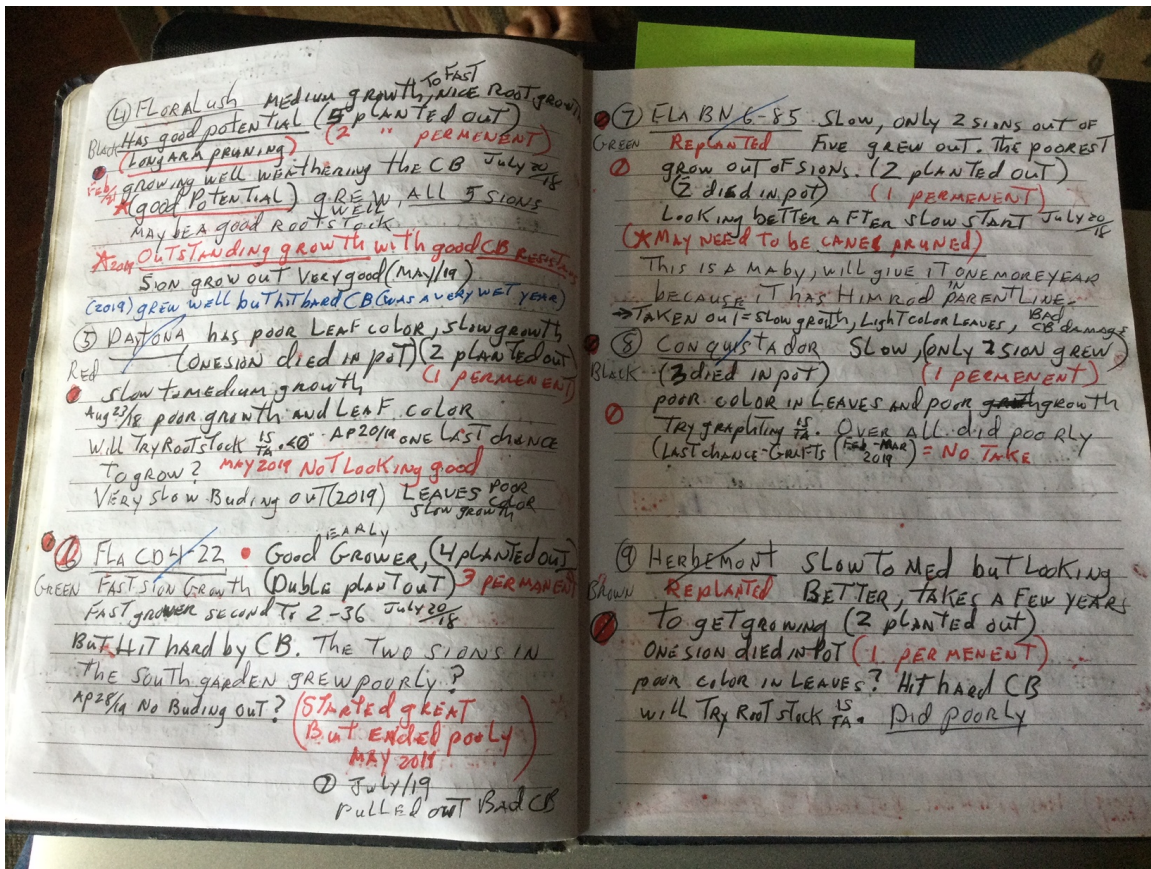 ④ FLORALUSH MEDIUM GROWTH, TO FAST NICE ROOT GROWTH
Black HAS good potential (5 planted out)
(LONG ARM PRUNING) (2 " PERMENENT)
Feb/ growing well weathering the CB July 20/18
★(good Potential) GREW WELL, ALL 5 SIONS
MAY BE A good ROOTSTOCK
★2019 OUTSTANDING growth with good CB RESIST
SION grow out Very good (MAY/19)
(2019) grew well but hit hard CB (WAS A VERY WET YEAR)
⑤ DAYTONA has poor LEAF color, slow growth
Red (ONE SION died IN POT) (2 planted out)
slow to medium growth (1 PERMENENT)
Aug 23/18 poor growth AND LEAF COLOR
Will Try Rootstock IS TA .<0" AP20/19 ONE LAST chance
To grow? MAY 2019 NOT Looking good
VERY slow Buding out (2019) LEAVES POOR COLOR
slow growth
⑥ FLA CD4-22 • Good EARLY Grower, (4 planted out)
GREEN FAST SION Growth (Duble plant out) 3 PERMANENT
FAST grower second To 2-36 July 20/18
But HIT hard by CB. The Two SIONS IN
the South garden grew poorly?
AP28/19 No Buding out? (STARTED great
But ended pooly
MAY 2019)
② July/19
pulled out Bad CB
⑦ ELA BN 6-85 SLOW, ONLY 2 SIONS OUT OF
GREEN REPLANTED FIVE GREW OUT. THE POOREST
grow OUT OF SIONS. (2 planted out)
(2 died in pot) (1 PERMENENT)
Looking better AFTER slow START July 20/18
(★MAY NEED TO be CANE PRUNED)
This is A MABY, will give IT IN ONE MORE YEAR
because IT HAS HIMROD PARENT LINE.
→ TAKEN OUT = slow growth, Light color LEAVES, BAD CB damage
⑧ CONQUISTADOR SLOW, (ONLY 2 SION grew)
BLACK (3 died IN POT) (1 PERMENENT)
pooR coloR IN LEAVES AND pooR growth
Try graphting IS TA. OVER ALL did pooRLY
(LAST chance-Grafts (Feb-MAR 2019) = No TAKE
⑨ HERBEMONT SLOW TO MED but Looking
BROWN REPLANTED BETTER, TAKES A FEW YEARS
To getgrowing (2 planted out)
ONE SION died IN POT (1 PERMENENT)
pooR coloR IN LEAVES? HIT hard CB
will Try Root stock IS TA. Did Poorly